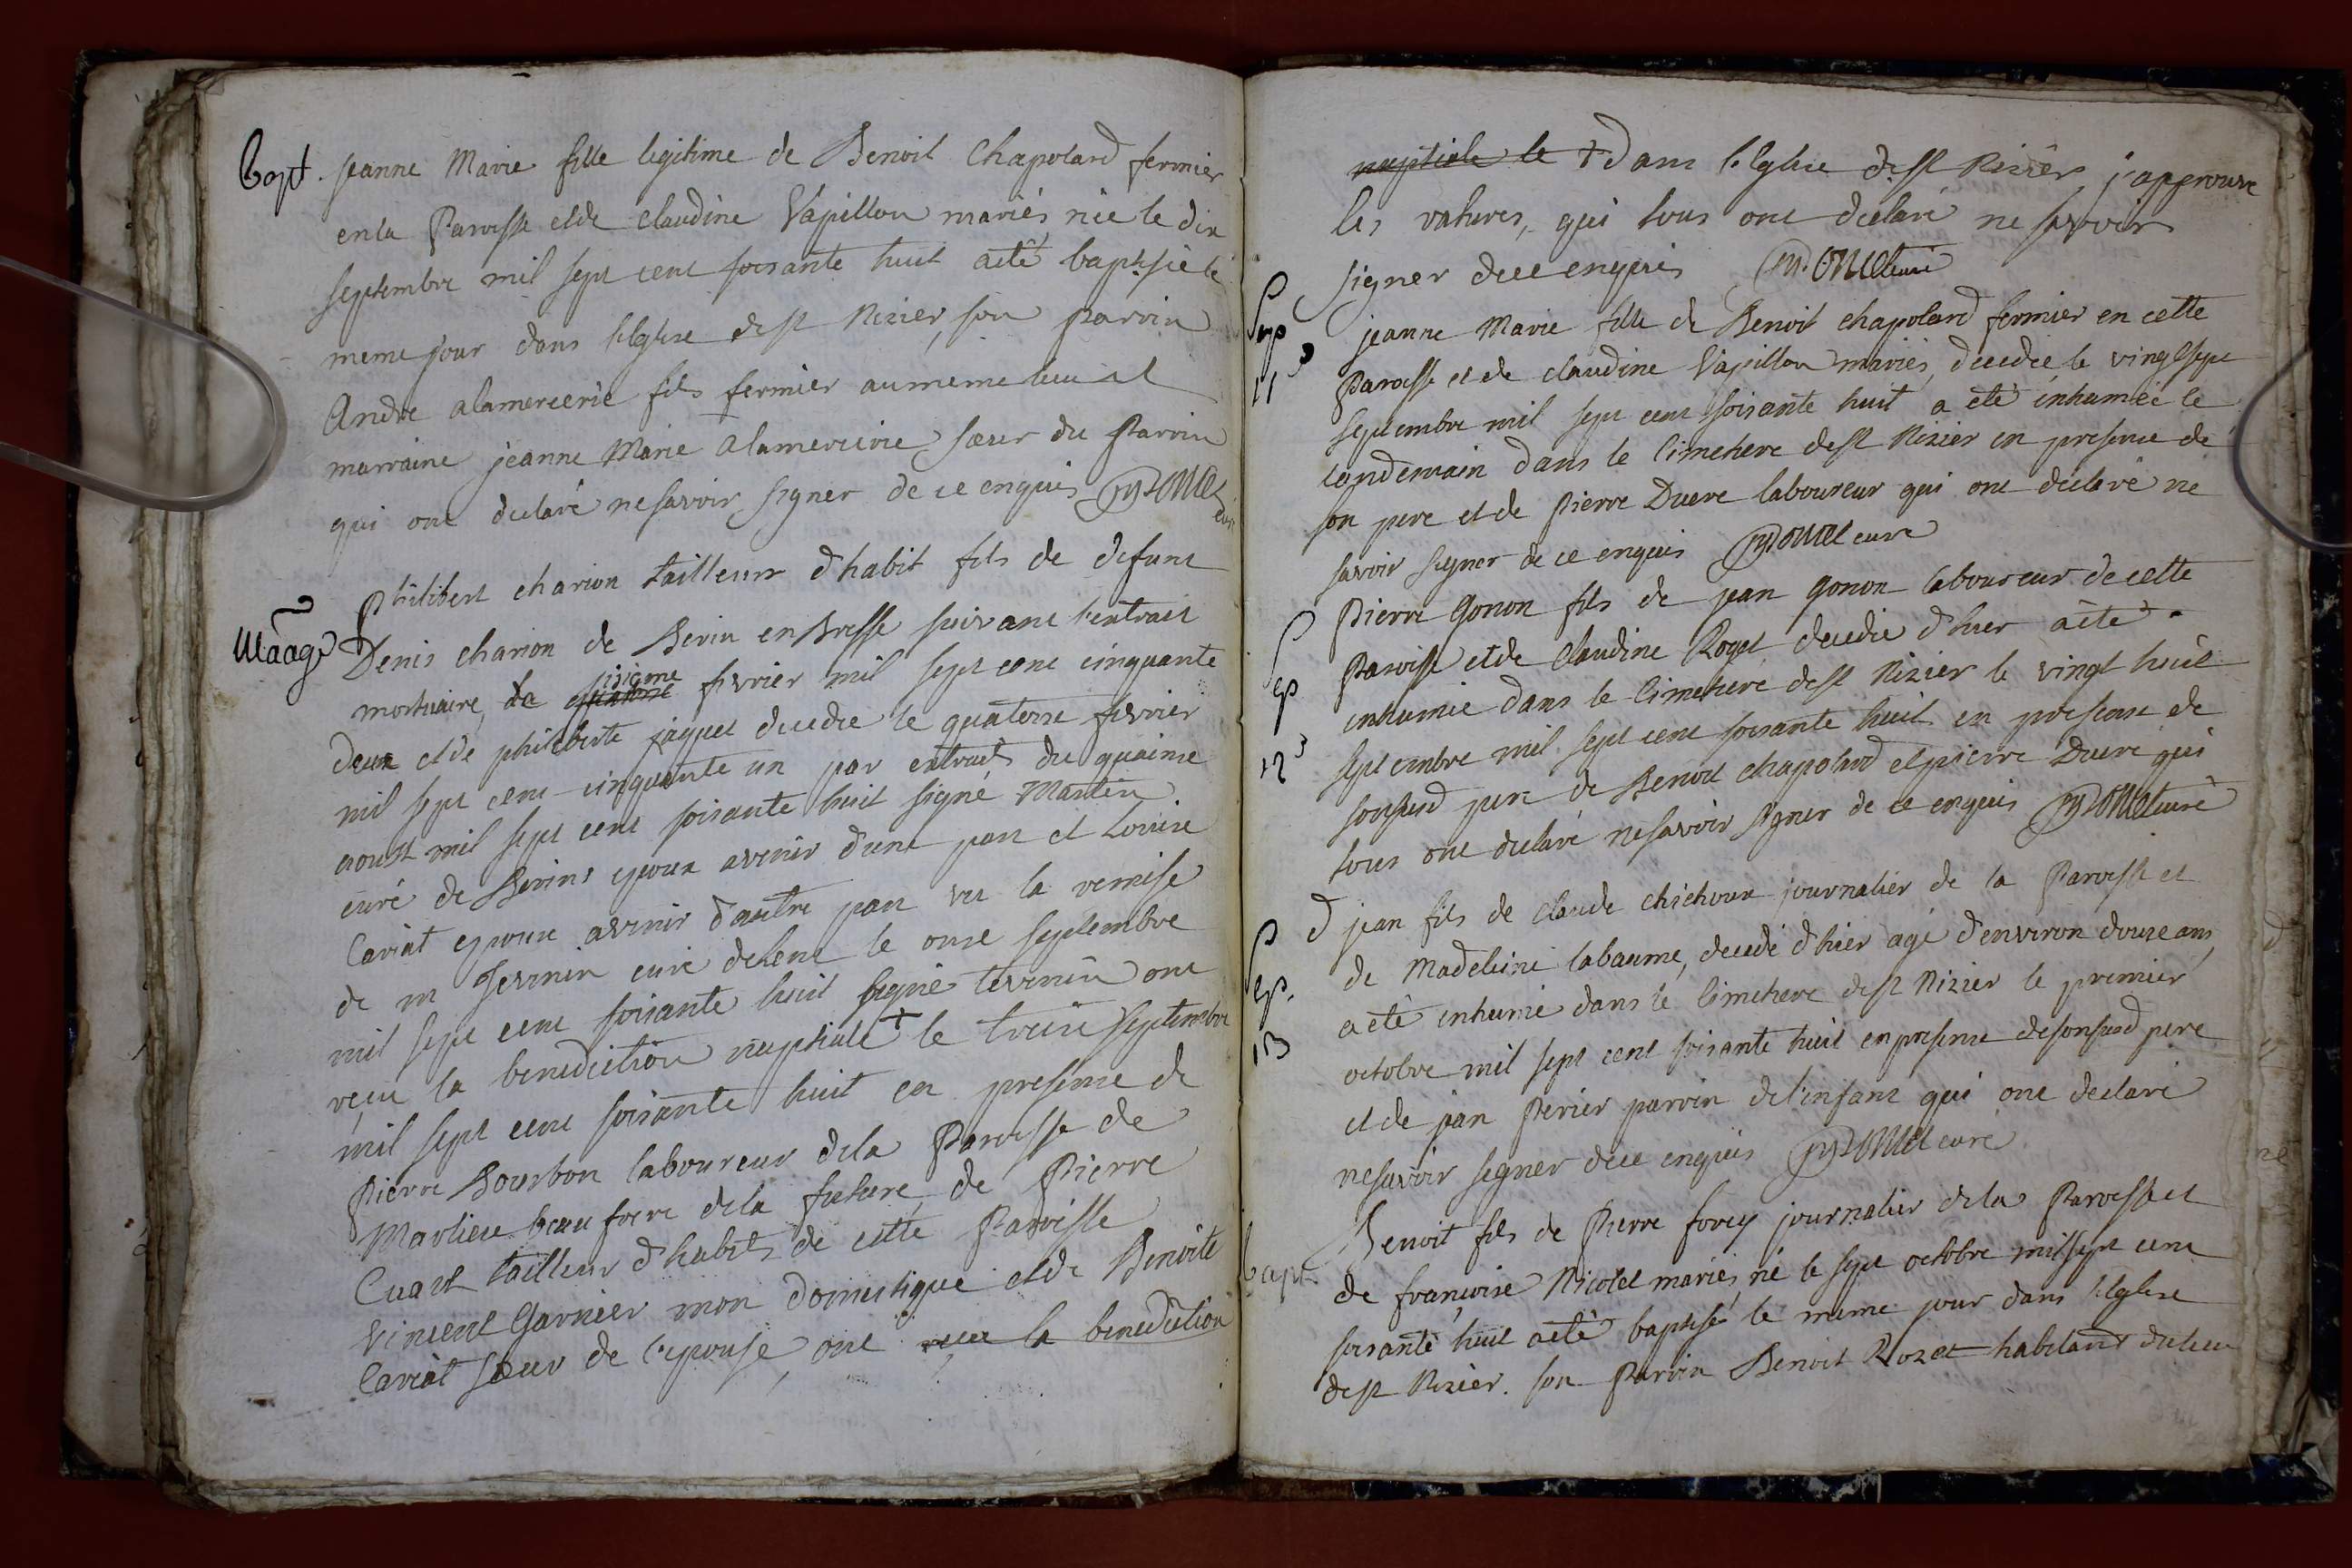 Bapt. jeanne Marie fille legitime de Benoit Chapolard fermier
en la Paroisse et de claudine Vapillon mariés, née le dix
septembre mil sept cent soixante huit a eté baptisée le
meme jour dans l'Eglise de st Nizier, son parrin
André alamercerie fils fermier au meme lieu et
marraine jeanne Marie alamercerie sœur du Parrin
qui ont declaré ne savoir signer de ce enquis
curé
Philibert charion tailleur d'habit fils de defunt
Maage Denis charion de Berin en Bresse suivant l'extrait
mortuaire, du sixieme fevrier mil sept cent cinquante
deux et de philiberte jaquet decedée le quatorze fevrier
mil sept cent cinquante un par extrait du quainse
aoust mil sept cent soixante huit signé Martin
curé de Berins epoux avenir d'une part et Louise
Cariat epouse avenir d'autre part vu la remise
de m Tevenin curé de lent le onze septembre
mil sept cent soixante huit signé tevenin ont
reçu la benediction nuptiale + le treize septembre
mil sept cent soixante huit en presence de
Pierre Bourbon laboureur de la Paroisse de
Marlieu beau frere de la future, de Pierre
Cuart tailleur d'habits de cette Paroisse
vincent Garnier mon domestique et de Benoite
Cariat sœur de l'epouse, ont reçu la benediction
nuptiale le + dans l'Eglise de st Nizier, j'approuve
les ratures, qui tous ont declaré ne savoir
signer de ce enquis curé
Sep
11
jeanne Marie fille de Benoit chapolard fermier en cette
Paroisse et de claudine Vapillon mariés, decedée le vingt sept
septembre mil sept cent soixante huit a eté inhumée le
landemain dans le Cimetiere de st Nizier en presence de
son pere et de Pierre Duere laboureur qui ont declaré ne
savoir signer de ce enquis curé
Sep
12
Pierre Gonon fils de jean Gonon laboureur de cette
Paroisse et de Claudine Roget decedé d'hier a eté
inhumé dans le Cimetiere de st Nizier le vingt huit
septembre mil sept cent soixante huit en presence de
sonsusd pere de Benoit chapolard et pierre Duere qui
tous ont declaré ne savoir signer de ce enquis curé
Sep.
13
d jean fils de Claude chichoux journalier de la Paroisse et
de Madeleine labaume, decedé d'hier agé d'environ douze ans,
a eté inhumé dans le Cimetiere de st Nizier le premier
octobre mil sept cent soixante huit en presence de sonsusd pere
et de jean Perier parrin de l'enfant qui ont declaré
ne savoir signer de ce enquis curé
bapt.
Benoit fils de Pierre forey journalier de la Paroisse et
de françoise Nicolet mariés, né le sept octobre mil sept cent
soixante huit a eté baptisé le meme jour dans l'Eglise
de st Nizier. son Parrin Benoit Rozet habitant du lieu